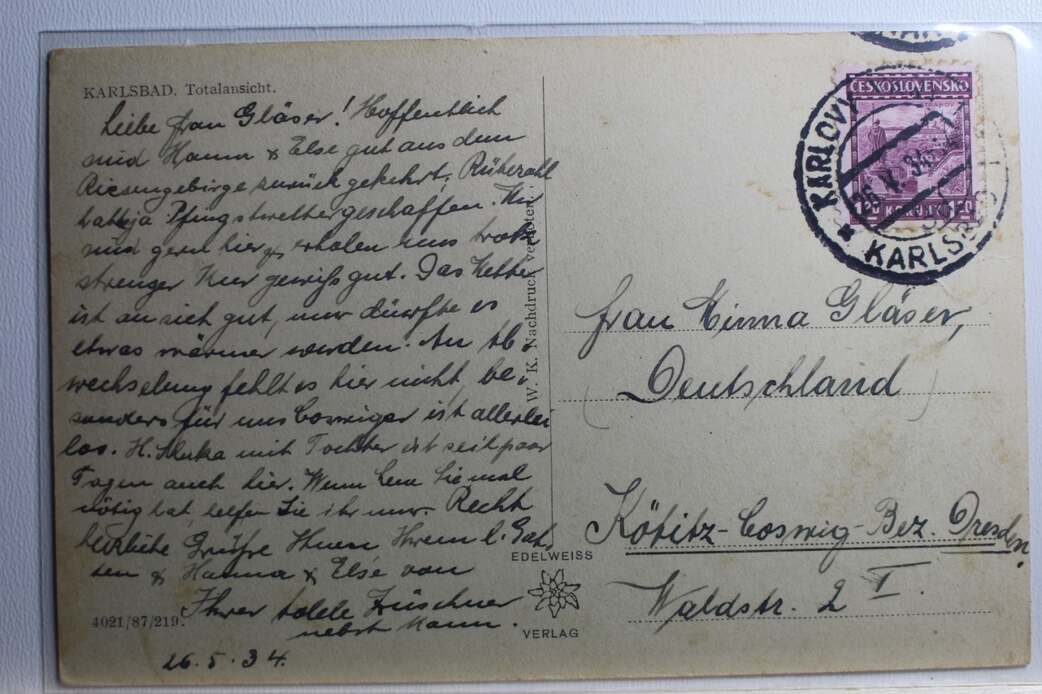 KARLSBAD. Totalansicht.
Liebe Frau Gläser! Hoffentlich
sind Hanna & Else gut aus dem
Riesengebirge zurück gekehrt, Rübezahl
hat ja Pfingstwetter geschaffen. Wir
sind gern hier & erholen uns trotz
strenger Kur gewiß gut. Das Wetter
ist an sich gut, nur dürfte es
etwas wärmer werden. An Ab-
wechselung fehlt es hier nicht, be-
sonders für uns Coswiger ist allerlei
los. H. mit Tochter ist seit paar
Tagen auch hier. Wenn Lena Sie mal
nötig hat, helfen Sie ihr nur. Recht
herzliche Grüße Ihnen, Ihrem l. Gat-
ten & Hanna & Else von
Ihrer
nebst Mann.
26.5.34.
4021/87/219.
W. K. Nachdruck verboten
EDELWEISS
VERLAG
ČESKOSLOVENSKO
1.20 1.20
KARLOVY
KARLSBAD
26. V. 34
Frau Minna Gläser,
(Deutschland)
Kötitz-Coswig-Bez. Dresden.
Waldstr. 2 I.